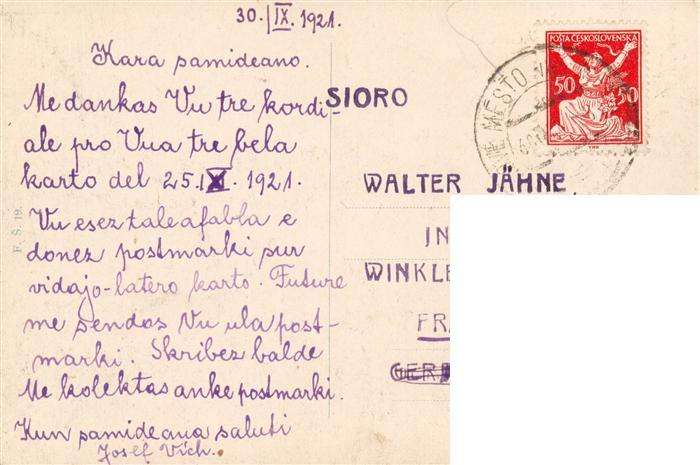 30./IX. 1921.
Kara samideano.
Me dankas Vu tre kordi-
ale pro Vua tre bela
karto del 25. IX. 1921.
Vu esez tale afabla e
donez postmarki sur
vidajo-latero karto. Future
me sendos Vu ula post-
marki. Skribez balde
Me kolektas anke postmarki.
Kun samideana saluti
Josef Vích.
F. S. 19.
SIORO
WALTER JÄHNE,
IN
WINKLE
FRA
GER
POŠTA ČESKOSLOVENSKÁ
50 50
MĚSTO